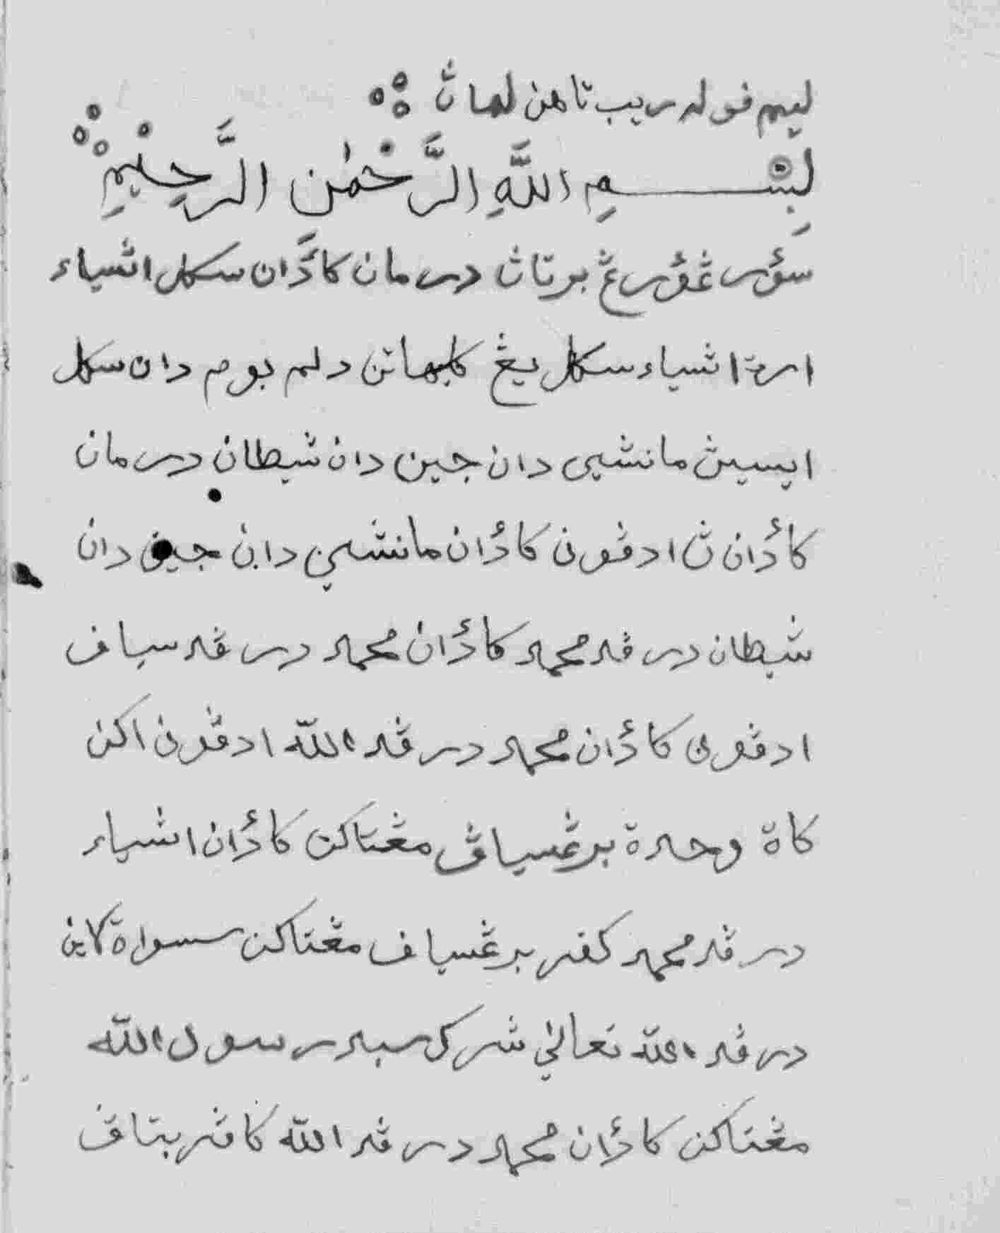 ليم ڤوله ريب تاهن لماڽ
بِسْمِ اللَّهِ الرَّحْمٰنِ الرَّحِيْمِ
سؤرڠؤرڠ برتاڽ درمان كاۮأن سكل اشياء
ارة اشياء سكل يڠ كليهاتن دلم بوم دان سكل
ايسيڽ مانشي دان جين دان شيطان درمان
كاۮأنڽ ادڤون كاۮأن مانشي دان جين دان
شيطان در ڤد محمد كاۮأن محمد در ڤد سياف
ادڤون كاۮأن محمد در ڤد الله ادڤون اكن
كات وحدة برڠسياڤ مڠتاكن كاۮأن اشياء
در ڤد محمد كفر برڠسياف مڠتاكن سسواة لاين
در ڤد الله تعالى شرك سبدا رسول الله
مڠتاكن كاۮأن محمد در ڤد الله كافر بتاڤ